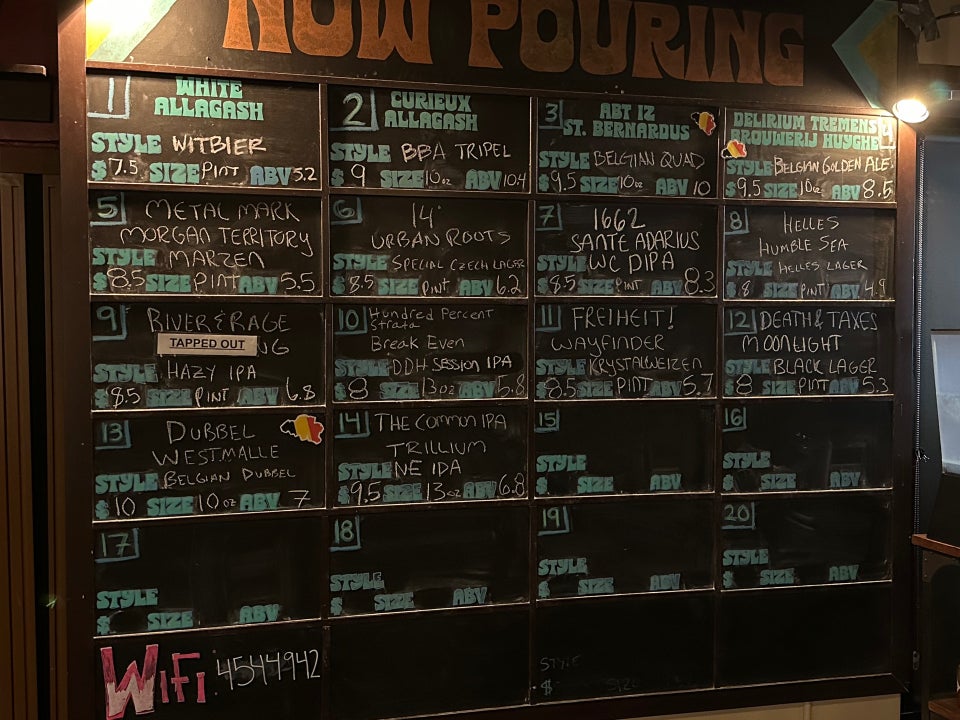 NOW POURING
1 WHITE
ALLAGASH
STYLE WITBIER
$7.5 SIZE PINT ABV 5.2
2 CURIEUX
ALLAGASH
STYLE BBA TRIPEL
$9 SIZE 10oz ABV 10.4
3 ABT 12
ST. BERNARDUS
STYLE BELGIAN QUAD
$9.5 SIZE 10oz ABV 10
DELIRIUM TREMENS 4
BROUWERIJ HUYGHE
STYLE BELGIAN GOLDEN ALE
$9.5 SIZE 10oz ABV 8.5
5 METAL MARK
MORGAN TERRITORY
STYLE MARZEN
$8.5 SIZE PINT ABV 5.5
6 14°
URBAN ROOTS
STYLE SPECIAL CZECH LAGER
$8.5 SIZE PINT ABV 6.2
7 1662
SANTE ADARIUS
STYLE WC DIPA
$8.5 SIZE PINT ABV 8.3
8 HELLES
HUMBLE SEA
STYLE HELLES LAGER
$8 SIZE PINT ABV 4.9
9 RIVER & RAGE
TAPPED OUT
STYLE HAZY IPA
$8.5 SIZE PINT ABV 6.8
10 Hundred Percent
Strata
Break Even
STYLE DDH SESSION IPA
$8 SIZE 13oz ABV 5.8
11 FREIHEIT!
WAYFINDER
STYLE KRYSTALWEIZEN
$8.5 SIZE PINT ABV 5.7
12 DEATH & TAXES
MOONLIGHT
STYLE BLACK LAGER
$8 SIZE PINT ABV 5.3
13 DUBBEL
WESTMALLE
STYLE BELGIAN DUBBEL
$10 SIZE 10oz ABV 7
14 THE COMMON IPA
TRILLIUM
STYLE NE IDA
$9.5 SIZE 13oz ABV 6.8
15
STYLE
$ SIZE ABV
16
STYLE
$ SIZE ABV
17
STYLE
$ SIZE ABV
18
STYLE
$ SIZE ABV
19
STYLE
$ SIZE ABV
20
STYLE
$ SIZE ABV
WIFI: 4544942
STYLE
$ SIZE